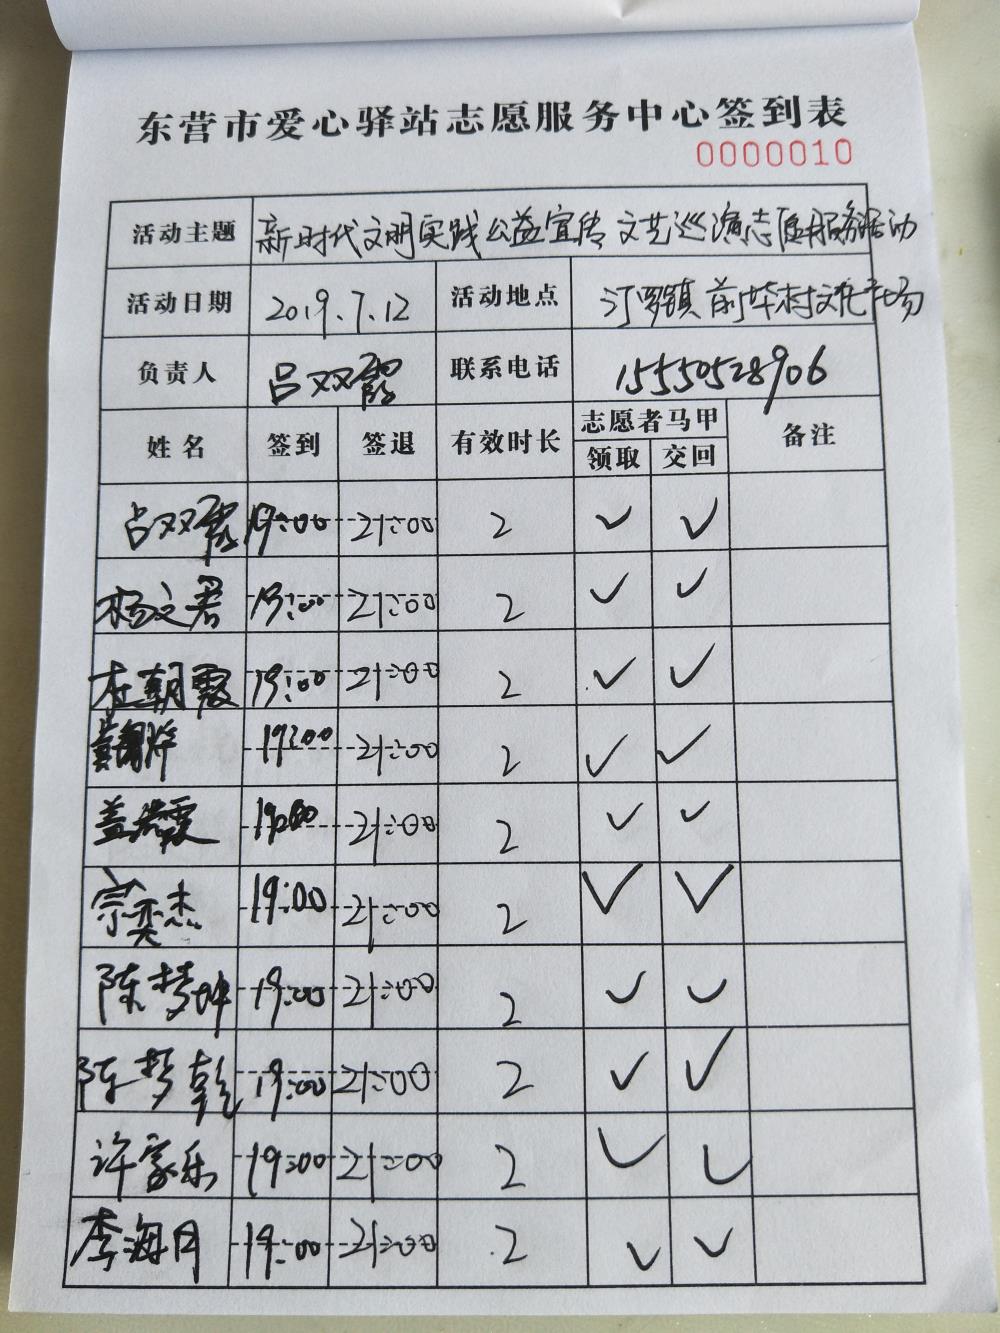 东营市爱心驿站志愿服务中心签到表
0000010
活动主题 新时代文明实践公益宣传文艺巡演志愿服务活动
活动日期 2019.7.12 活动地点 汀罗镇前毕村文化广场
负责人 吕双霞 联系电话 15550528906
姓名 签到 签退 有效时长 志愿者马甲 备注
领取 交回
吕双霞 19:00 21:00 2 ✓ ✓
杨文君 19:00 21:00 2 ✓ ✓
杜朝霞 19:00 21:00 2 ✓ ✓
19:00 21:00 2 ✓ ✓
盖洪霞 19:00 21:00 2 ✓ ✓
宗奕杰 19:00 21:00 2 ✓ ✓
陈梦坤 19:00 21:00 2 ✓ ✓
陈梦乾 19:00 21:00 2 ✓ ✓
许家乐 19:00 21:00 2 ✓ ✓
李海月 19:00 21:00 2 ✓ ✓